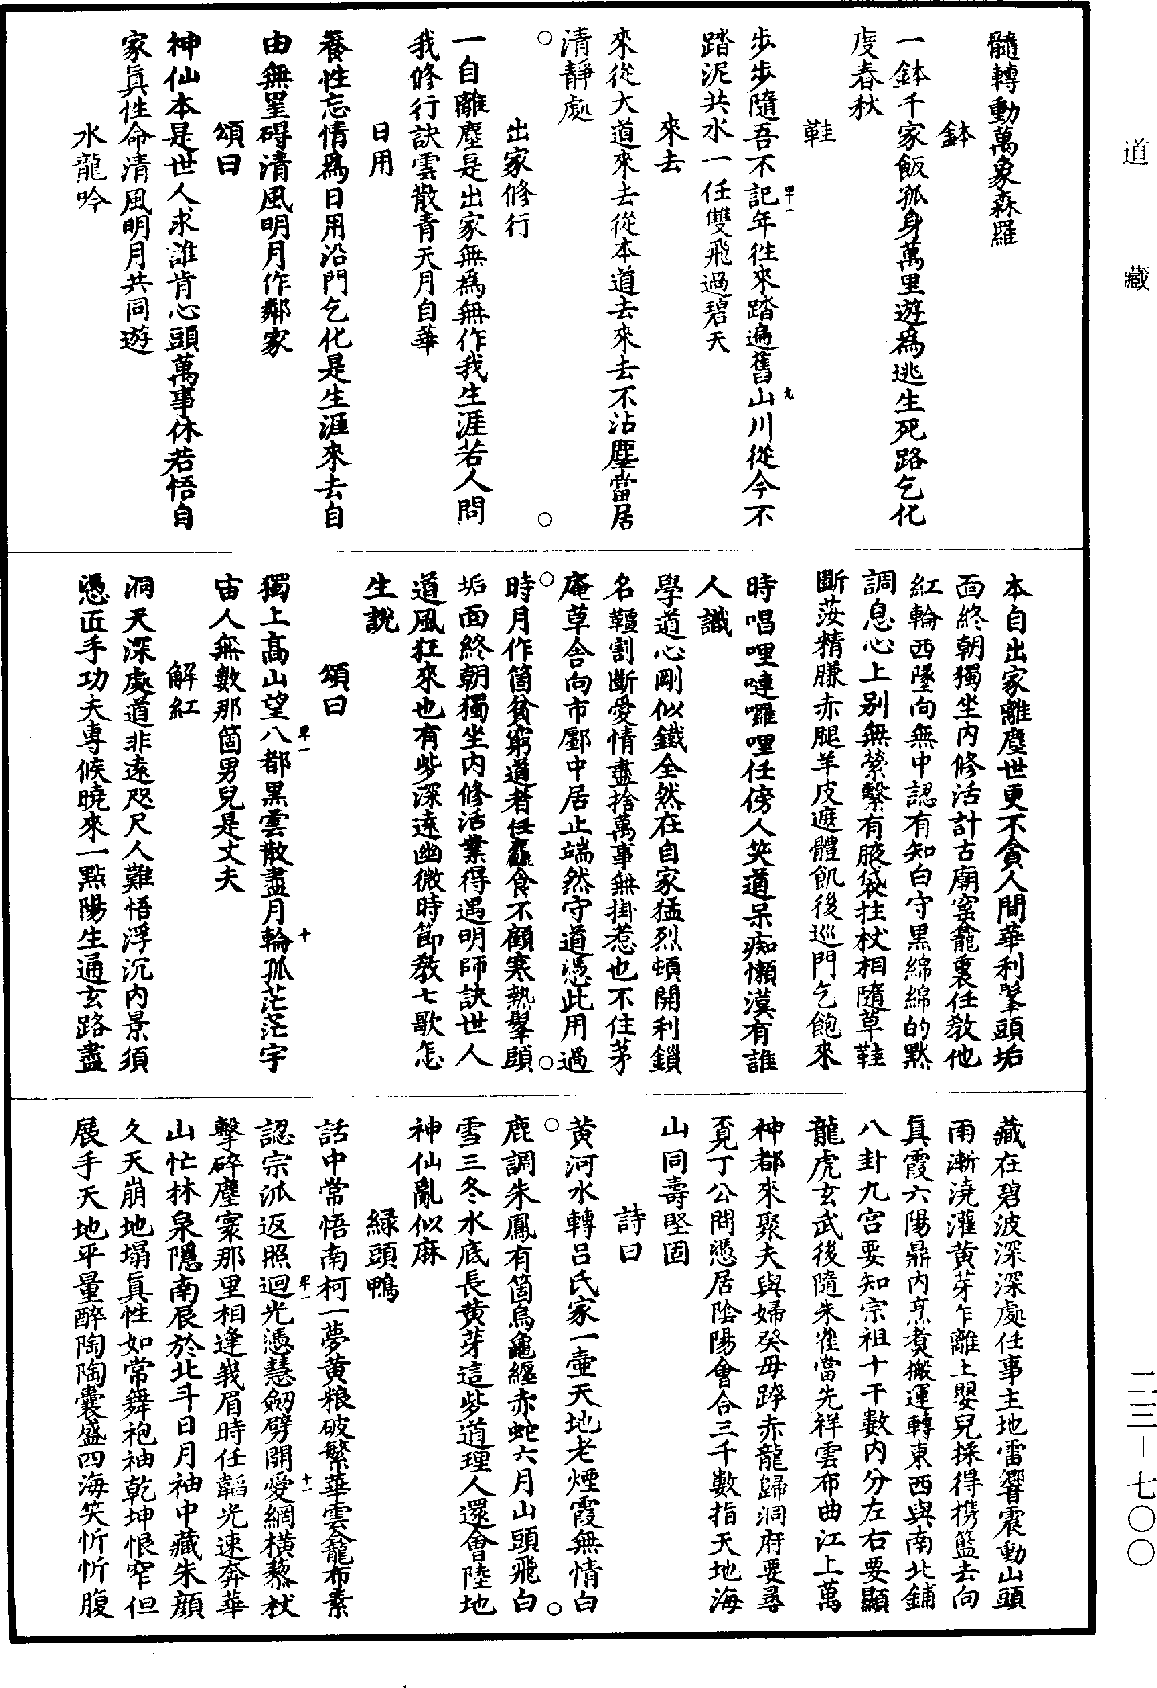 道藏
髓轉動萬象森羅
鉢
一鉢千家飯孤身萬里遊爲逃生死路乞化
度春秋
鞋
步步隨吾不記年徃來踏遍舊山川從今不
踏泥共水一任雙飛過碧天
來去
來從大道來去從本道去來去不沾塵當居
清靜處
出家修行
一自離塵是出家無爲無作我生涯若人問
我修行訣雲散青天月自華
日用
養性忘情爲日用沿門乞化是生涯來去自
由無罣碍清風明月作鄰家
頌曰
神仙本是世人求誰肯心頭萬事休若悟自
家眞性命清風明月共同遊
水龍吟
本自出家離塵世更不貪人間華利髼頭垢
面終朝獨坐內修活計古廟窯龕裏任教他
紅輪西墜向無中認有知白守黑綿綿的點
調息心上別無縈繫有腋袋拄杖相隨草鞋
斷莎精賺赤腿羊皮遮體飢後巡門乞飽來
時唱哩嗹囉哩任傍人笑道呆痴懶漢有誰
人識
學道心剛似鐵全然在自家猛烈頓開利鎖
名韁割斷愛情盡捨萬事無掛惹也不住茅
庵草舍向市鄽中居止端然守道憑此用過
時月作箇貧窮道者任麤食不顧寒熱髼頭
垢面終朝獨坐內修活業得遇明師訣世人
道風狂來也有些深遠幽微時節教七歌怎
生說
頌曰
獨上高山望八都黑雲散盡月輪孤茫茫宇
宙人無數那箇男兒是丈夫
解紅
洞天深處道非遠咫尺人難悟浮沉內景須
憑匠手功夫專候曉來一點陽生通玄路盡
藏在碧波深深處任事主地雷響震動山頭
雨漸澆灌黃芽乍離上嬰兒採得携籃去向
眞霞六陽鼎內烹煑搬運轉東西與南北鋪
八卦九宮要知宗祖十干數內分左右要顯
龍虎玄武後隨朱雀當先祥雲布曲江上萬
神都來聚夫與婦癸毋踤赤龍歸洞府要尋
覓丁公問憑居陰陽會合三千數指天地海
山同壽堅固
詩曰
黃河水轉呂氏家一壷天地老煙霞無情白
鹿調朱鳳有箇烏龜纏赤蛇六月山頭飛白
雪三冬水底長黃芽這些道理人還會陸地
神仙亂似麻
緑頭鴨
話中常悟南柯一夢黃粮破繁華雲籠布素
認宗派返照迴光憑慧劒劈開愛網横藜杖
擊碎塵寰那里相逢峩眉時任韜光速奔華
山忙林泉隱南辰於北斗日月袖中藏朱顔
久天崩地塌眞性如常舞袍袖乾坤恨窄但
展手天地平量醉陶陶囊盛四海笑忻忻腹
二三－七〇〇